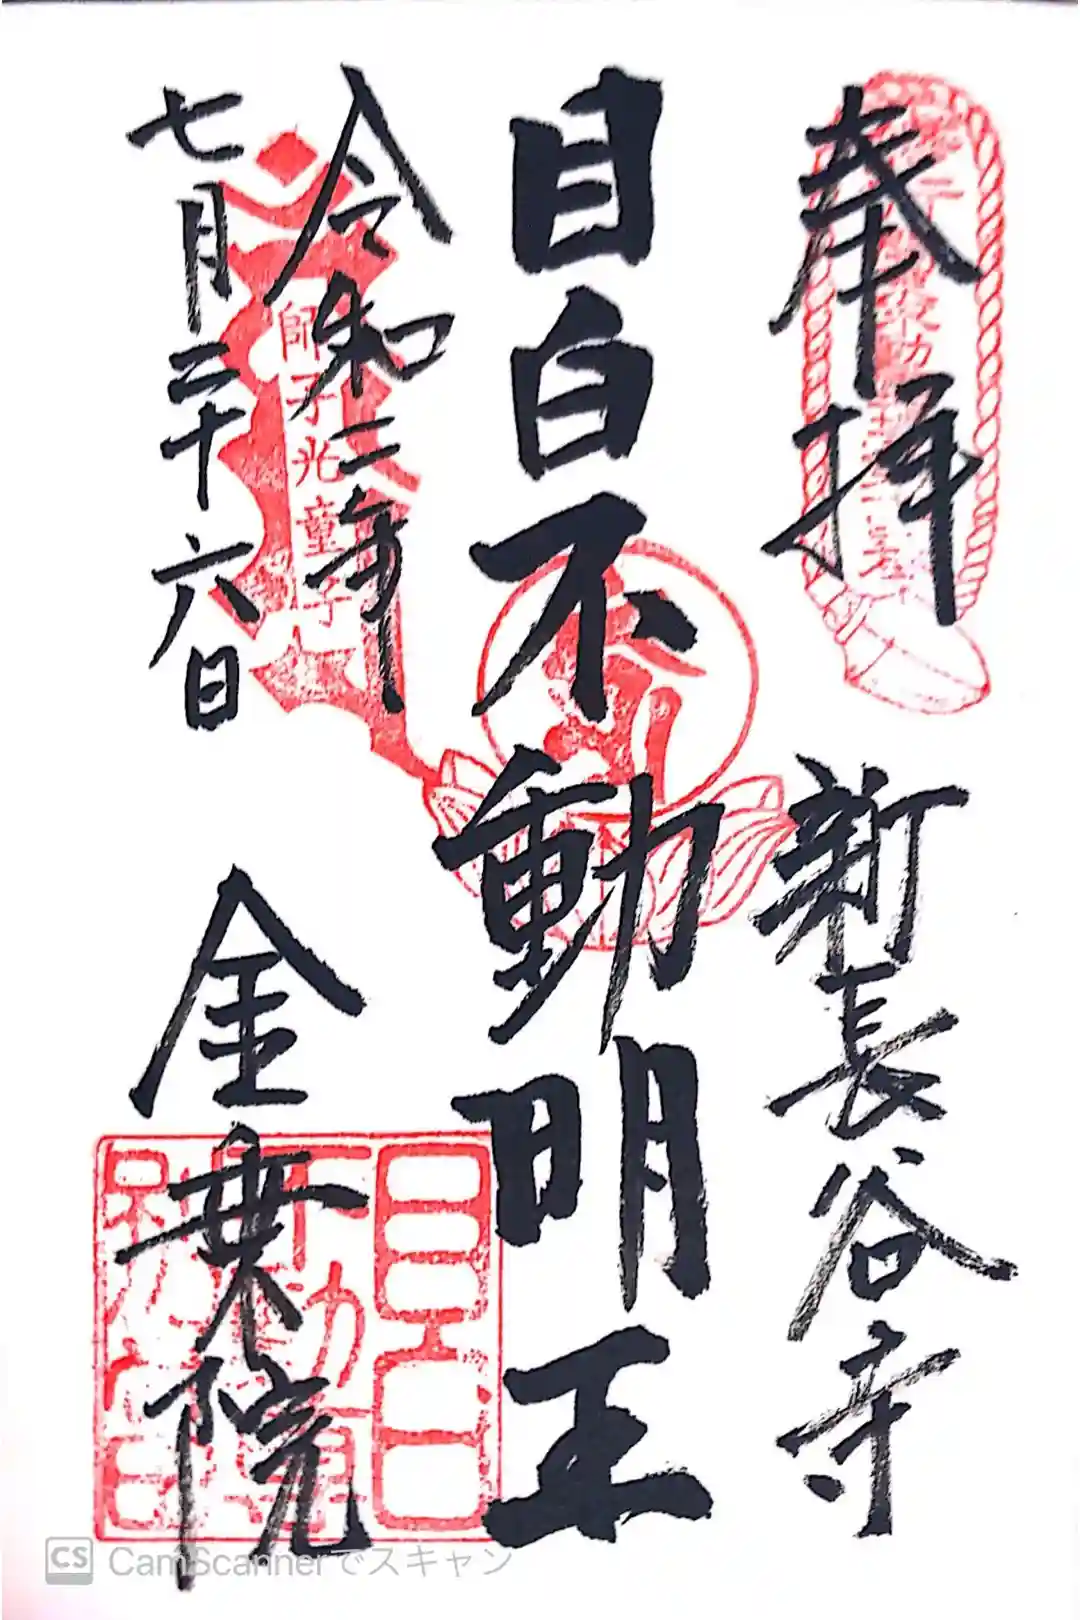 奉拝
新長谷寺
目白不動明王
令和二年
七月二十六日
金乗院
師子光童子
CS CamScannerでスキャン